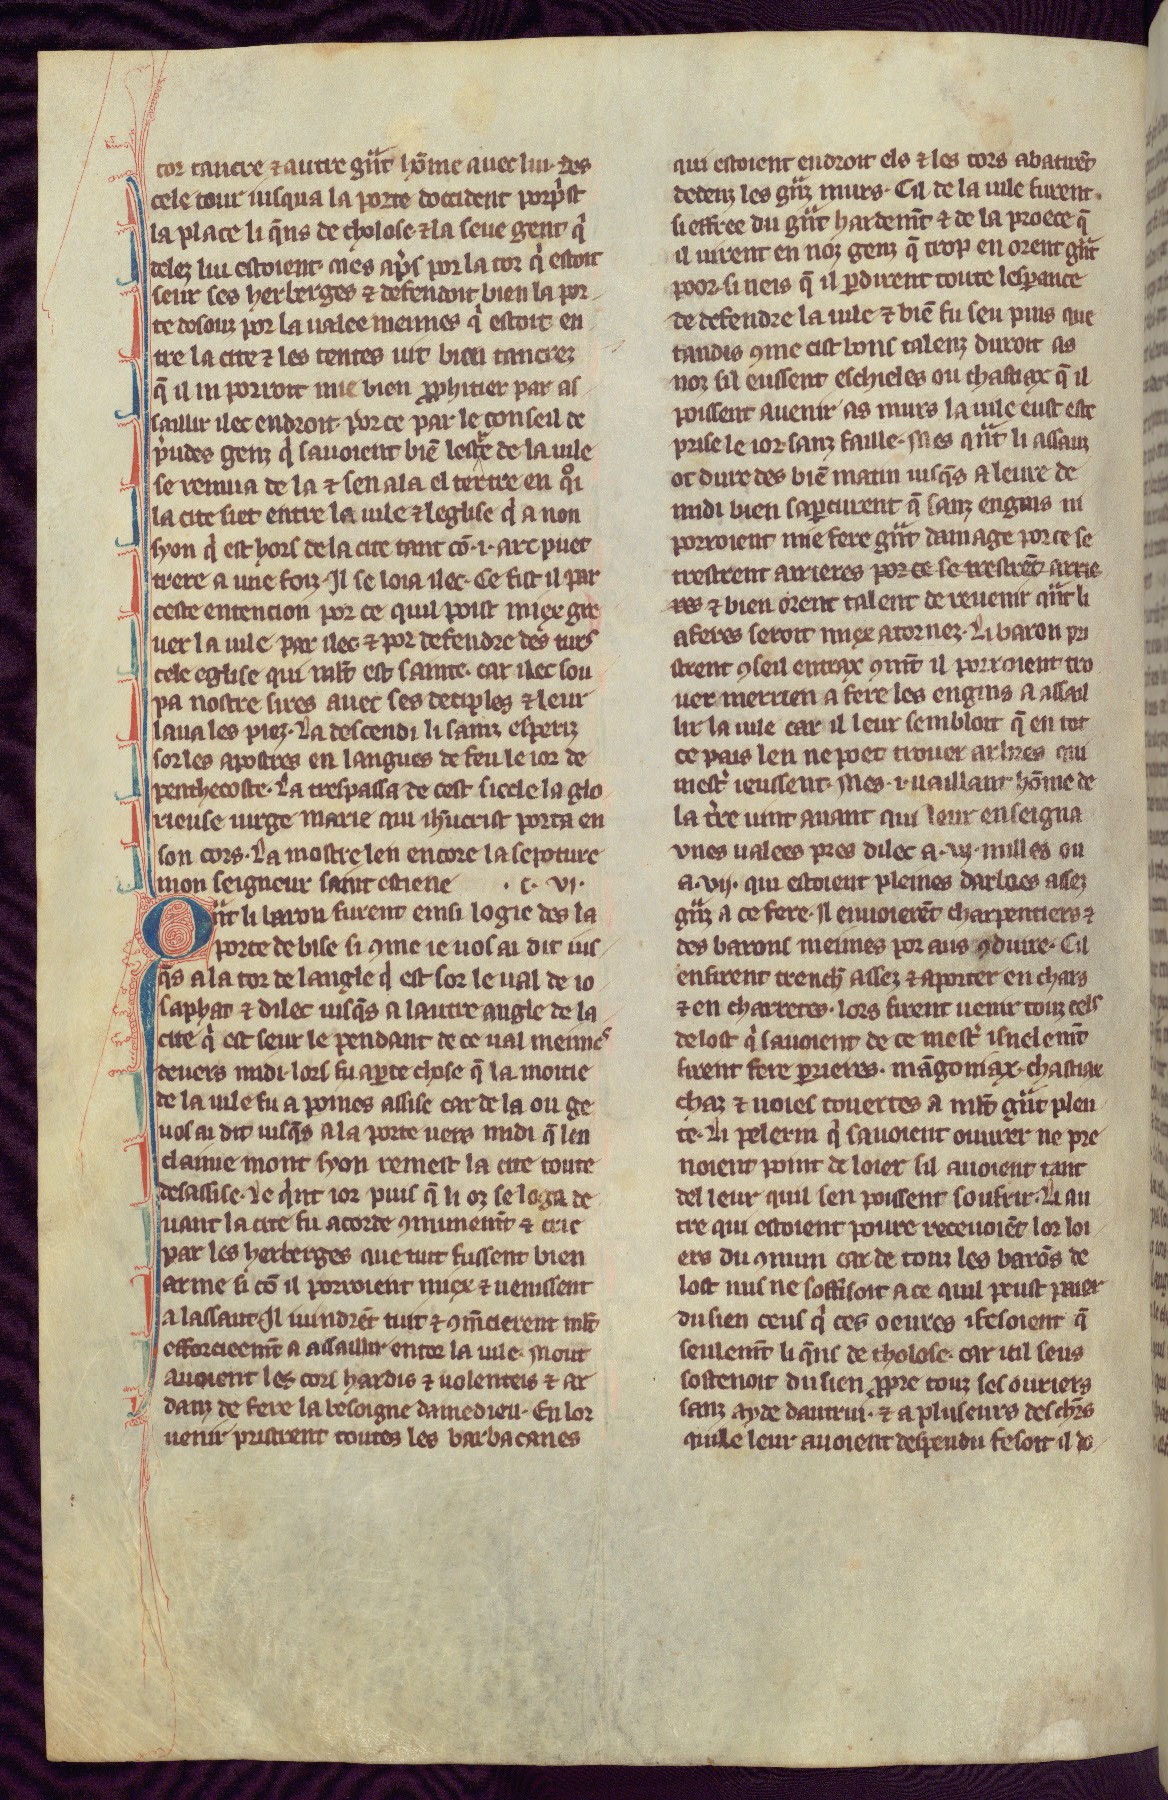 tor tancre ⁊ autre gͣnt hōme auec lui. Des
cele tour iusqua la porte doccident porpͥst
la place li qͣns de tholose ⁊ la seue gent qͥ
delez lui estoient. Mes apͥs por la tor qͥ estoit
seur ses herberges ⁊ defendoit bien la por
te desouz por la ualee meimes qͥ estoit en
tre la cite ⁊ les tentes uit bien tancrez
q̄ il ni porroit mie bien ꝓphitier par as
saillir ilec endroit. Por ce par le conseil de
pͥudes genz qͥ sauoient biē lestͣe de la uile
se remua de la ⁊ sen ala el tertre en qͦi
la cite siet entre la uile ⁊ leglise qͥ a non
syon qͥ est hors de la cite tant cō .i. arc puet
trere a une foiz. Il se loia ilec. Ce fist il par
ceste entencion por ce quil poist miex gre
uer la uile par ilec. ⁊ por defendre des turs
cele eglise qui ml̄t est sainte. car ilec sou
pa nostre sires auec ses deciples ⁊ leur
laua les piez. La descendi li sainz esperiz
sor les apostres en langues de feu le ior de
penthecoste. La trespassa de cest siecle la glo
rieuse uirge marie qui ih̄ucrist porta en
son cors. La mostre len encore la sepoture
mon seigneur saint estiene . c. vi.
Qͣnt li baron furent einsi logie des la
porte de bise si ꝯme ie uos ai dit ius
qͣs a la tor de langle qͥ est sor le ual de io
saphat ⁊ dilec iusqͣs a lautre angle de la
cite qͥ est seur le pendant de ce ual meimes
deuers midi. lors fu aꝑte chose q̄ la moitie
de la uile fu a poines assise car de la ou ge
uos ai dit iusqͣs a la porte uers midi q̄ len
claime mont syon remest la cite toute
desassise. Le qͥnt ior puis q̄ li oz se loga de
uant la cite fu acorde ꝯmunemͭ ⁊ crie
par les herberges que tuit fussent bien
arme si cō il porroient miex ⁊ uenissent
a lassaut. Il uindrēt tuit ⁊ ꝯm̄cierent ml̄t
efforcieemͭ a assaillir entor la uile. Mout
auoient les cors hardis ⁊ uolenteis ⁊ ar
danz de fere la besoigne damedieu. En lor
uenir pristrent toutes les barbacanes
qui estoient endroit els ⁊ les tors abatirēt
dedenz les gͣnz murs. Cil de la uile furent
si effree du gͣnt hardemͭ ⁊ de la proece q̄
il uirent en noz genz q̄ trop en orent gͣnt
poor. si neis q̄ il ꝑdirent toute lesꝑance
de defendre la uile ⁊ biē fu seu puis que
tandis ꝯme cist bons talenz duroit as
noz sil eussent eschieles ou chastiax q̄ il
poissent auenir as murs la uile eust este
prise le ior sanz faille. Mes qͣnt li assauz
ot dure des biē matin iusqͣs a leure de
midi bien saꝑcurent q̄ sanz engins ni
porroient mie fere gͣnt damage por ce se
trestrent arrieres por ce se trestrēt arrie
res ⁊ bien orent talent de reuenir qͣnt li
aferes seroit miex atornez. Li baron pri
strent ꝯseil entrax ꝯmͭ il porroient tro
uer merrien a fere les engins a assail
lir la uile car il leur sembloit q̄ en tot
ce pais len ne poet trouer arbres qui
mestͥ ieussent. Mes .i. uaillant hōme de
la tͥre uint auant qui leur enseigna
vnes ualees pres dilec a .vj. milles ou
a .vij. qui estoient pleines darbres assez
gͣnz a ce fere. Il enuoierēt charpentiers ⁊
des barons meimes por aus ꝯduire. Cil
en firent trench̄ assez ⁊ aporter en chars
⁊ en charretes. lors firent uenir touz cels
de lost qͥ sauoient de ce mestͥ isnelemͭ
firent fere ꝑrieres. māgoniax. chastiax
chaz ⁊ uoies couertes a ml̄t gͣnt plen
te. Li pelerin qͥ sauoient ouurer ne pre
noient point de loier sil auoient tant
del leur quil sen poissent soufrir. Li au
tre qui estoient poure receuoiēt lor loi
ers du ꝯmun car de touz les barōs de
lost nus ne soffisoit a ce quil peust paier
du sien ceus qͥ ces oeures i fesoient q̄
seulemͭ li qͣns de tholose. car icil seus
sostenoit du sien ꝓpre touz ses ouriers
sanz ayde dautrui. ⁊ a pluseurs des chr̄s
qui le leur auoient despendu fesoit il do